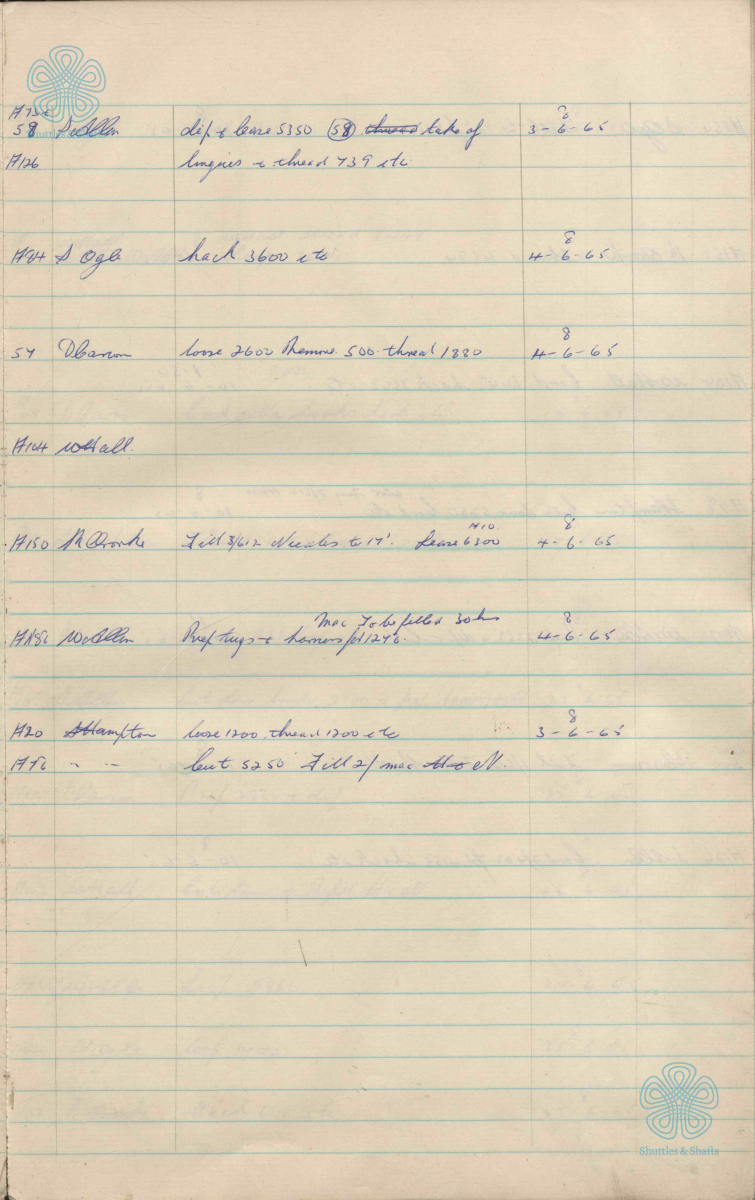 58 S Allen dip & lease 5350 58 thread take of 3-6-65 8
A126 lingoes & thread 739 etc
A84 S Ogle hack 3600 etc 4-6-65 8
54 loose 2600 500 thread 1880 4-6-65 8
A104 W Hall
A150 Fill 3/612 Needles to 17' Lease 6300 4-6-65 8
Mac To be filled 30 hrs
W Allen Prep tugs & harness for 4-6-65 8
A20 Hampton loose 1200 thread 1200 etc 3-6-65 8
" " cut 5250 Fill 2/ mac N.
Shuttles & Shafts